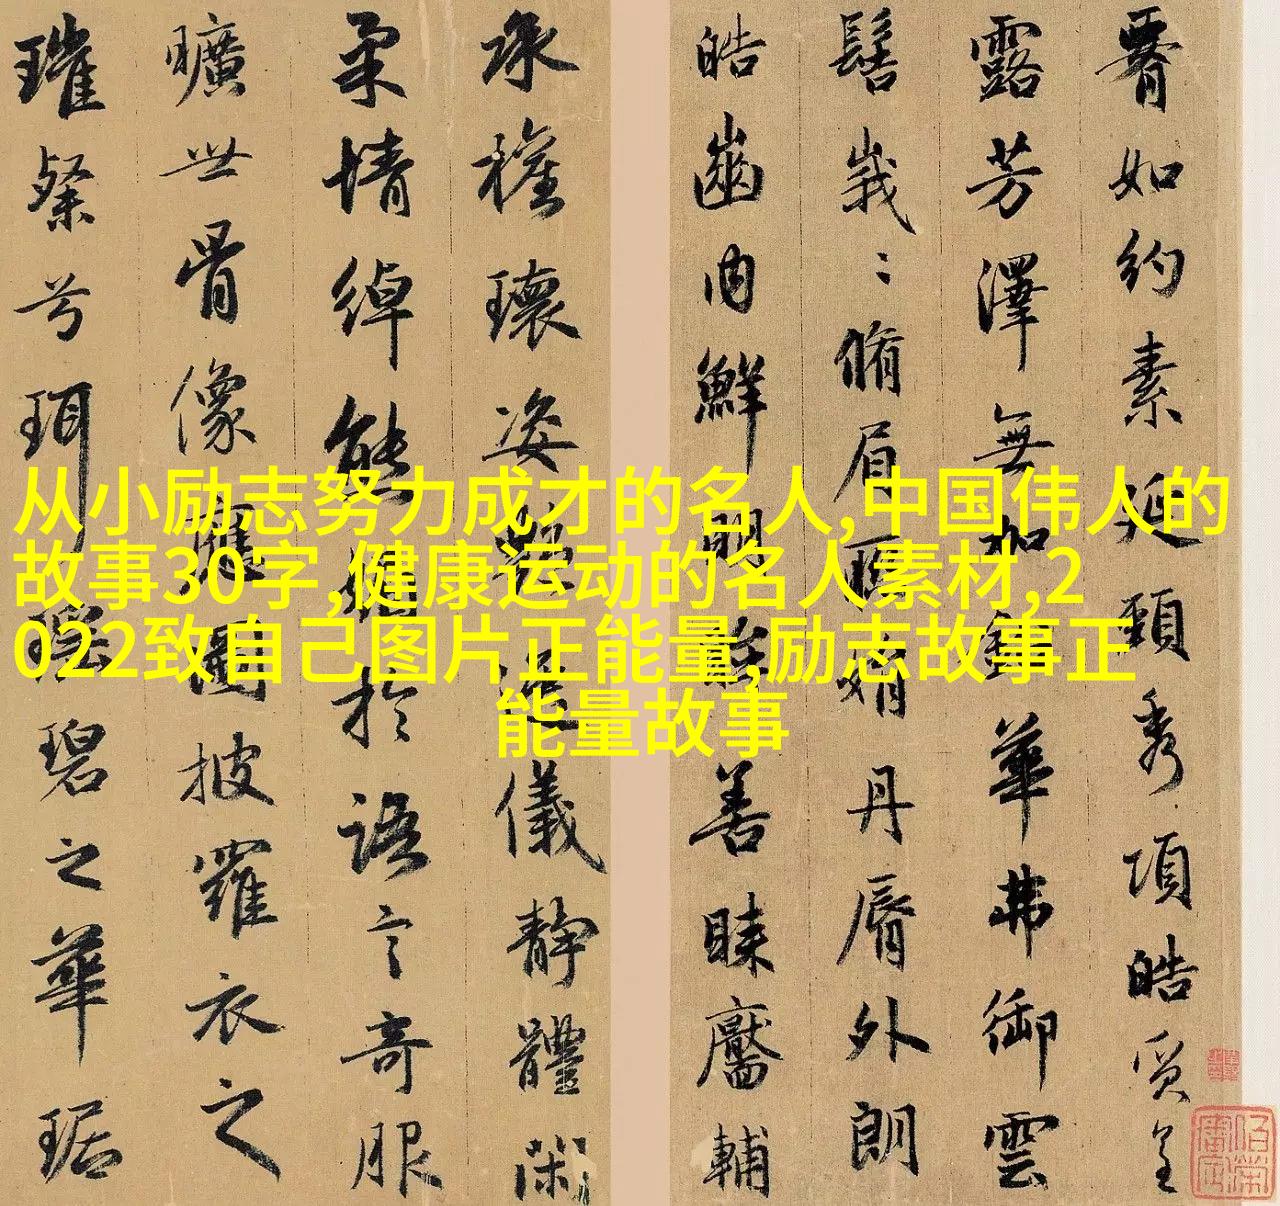 从小励志努力成才的名人,中国伟人的
故事30字,健康运动的名人素材,2
022致自己图片正能量,励志故事正
能量故事
腰如約素延頸秀項皓質呈
露芳澤無加鉛華弗御雲
髻峩〻脩眉聯娟丹脣外朗
皓齒内鮮明眸善睞靨輔
承權瓌姿艷逸儀靜體閑
柔情綽態媚於語言奇服
曠世骨像應圖披羅衣之
璀粲兮珥瑤碧之華琚